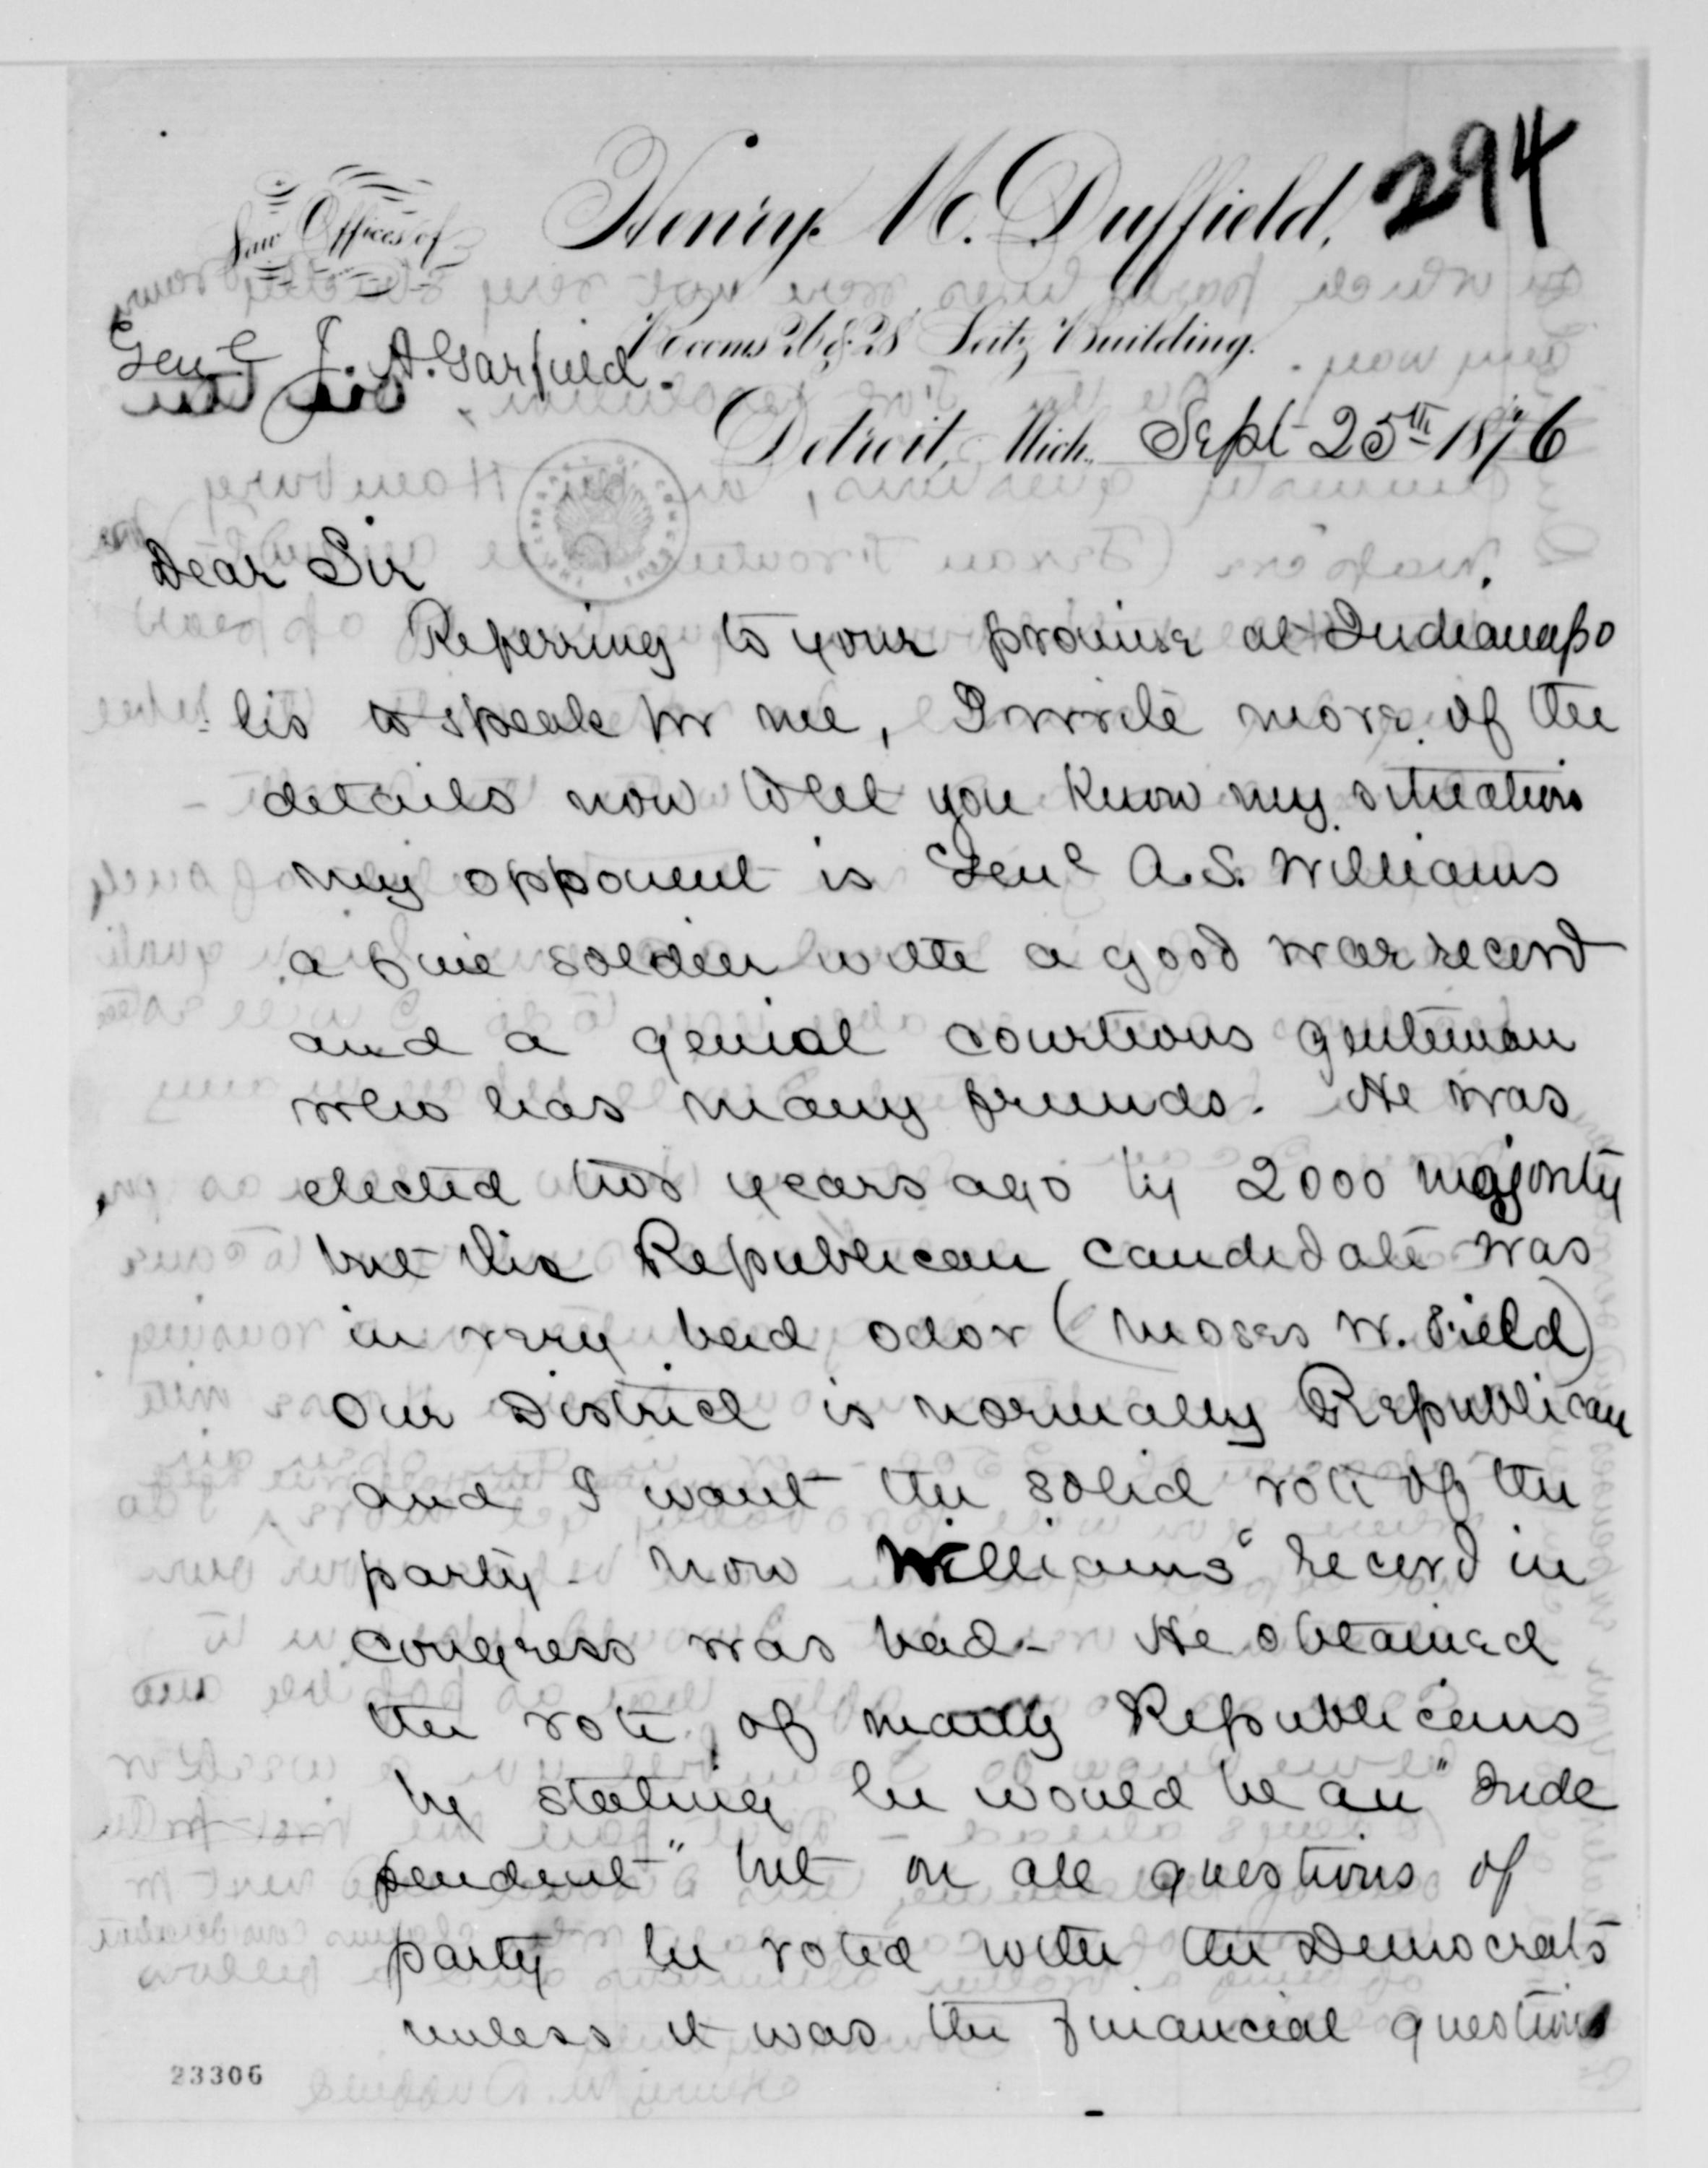 294
Law Offices of
Henry M. Duffield,
Rooms 26 & 28 Seitz Building.
Genl J. A. Garfield.
Detroit, Mich. Sept 25th 1876
Dear Sir
Referring to your promise at Indianapo
lis to speak for me, I write more of the
details now to let you know my situation
my opponent is Genl A. S. Williams
a fine soldier with a good war record
and a genial courtious gentleman
who has many friends. He was
elected two years ago by 2000 majority
but his Republican candidate was
in very bad odor (Moses W. Field)
Our District is normally Republican
and I want the solid vote of the
party - Now Williams' record in
Congress was bad - He obtained
the vote of many Republicans
by stating he would be an "Inde
pendent" but on all questions of
party he voted with the Democrats
unless it was the financial question
23306